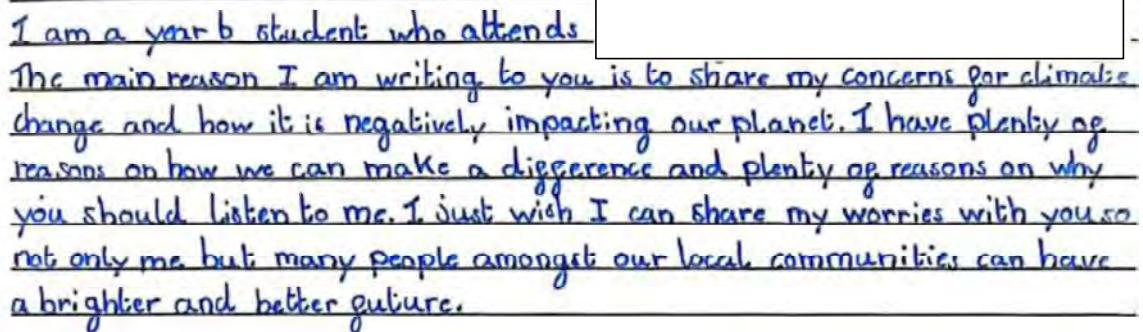 I am a year 6 student who attends .
The main reason I am writing to you is to share my concerns for climate
change and how it is negatively impacting our planet. I have plenty of
reasons on how we can make a difference and plenty of reasons on why
you should listen to me. I just wish I can share my worries with you so
not only me but many people amongst our local communities can have
a brighter and better future.